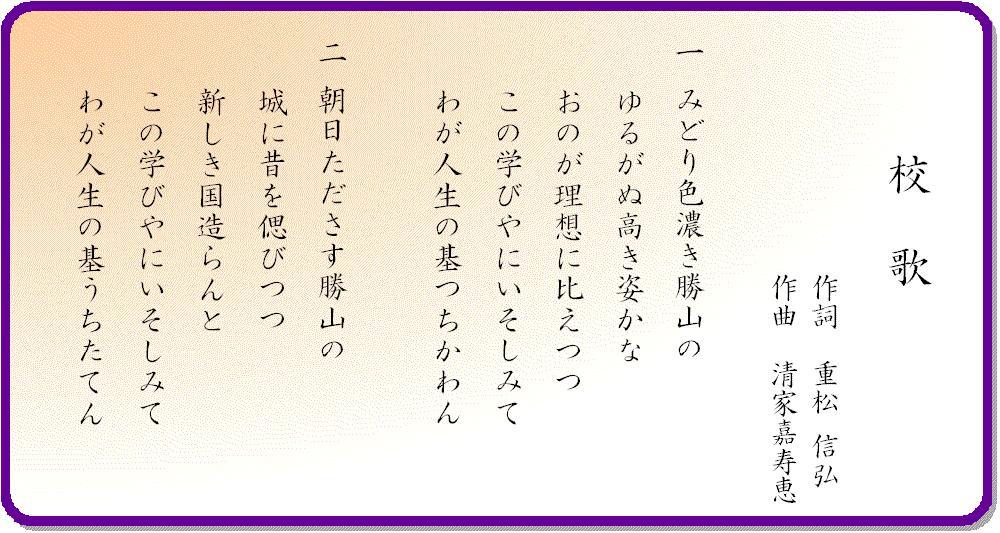 校歌
作詞 重松 信弘
作曲 清家嘉寿恵
一 みどり色濃き勝山の
ゆるがぬ高き姿かな
おのが理想に比えつつ
この学びやにいそしみて
わが人生の基つちかわん
二 朝日たださす勝山の
城に昔を偲びつつ
新しき国造らんと
この学びやにいそしみて
わが人生の基うちたてん